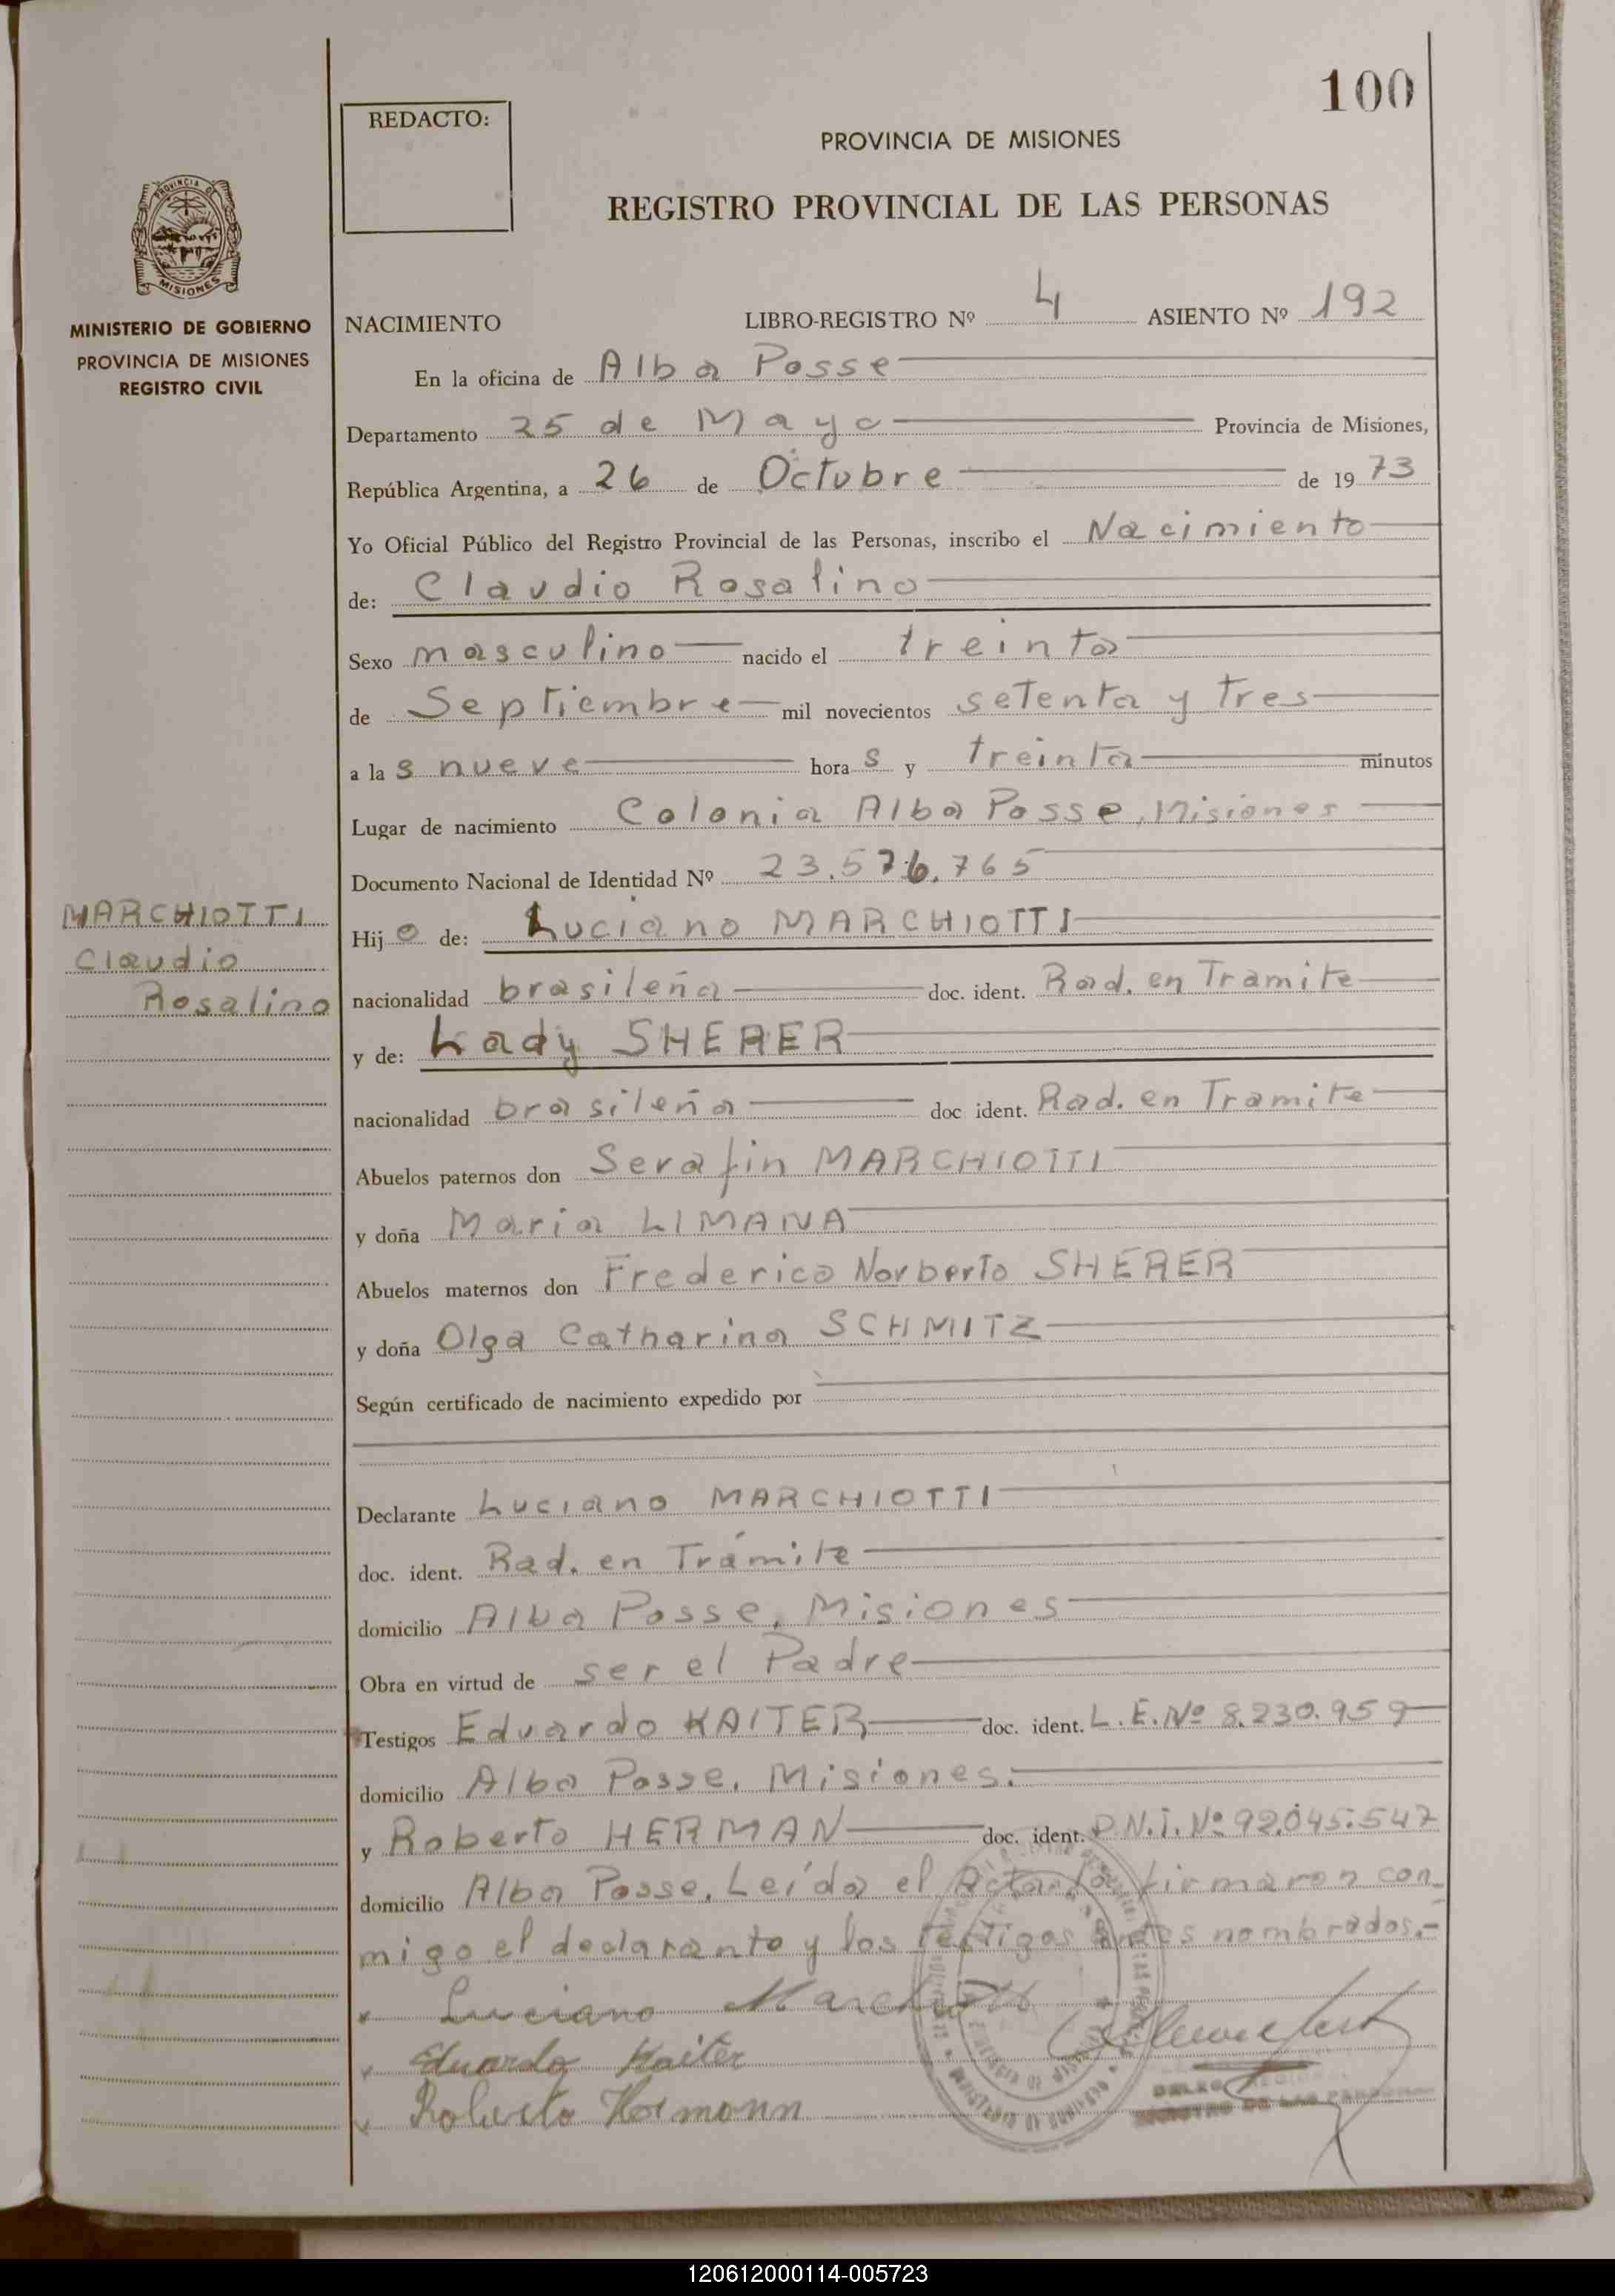 100
REDACTO:
PROVINCIA DE MISIONES
REGISTRO PROVINCIAL DE LAS PERSONAS
PROVINCIA DE
MISIONES
MINISTERIO DE GOBIERNO
PROVINCIA DE MISIONES
REGISTRO CIVIL
NACIMIENTO LIBRO-REGISTRO Nº 4 ASIENTO Nº 192
En la oficina de Alba Posse
Departamento 25 de Mayo Provincia de Misiones,
República Argentina, a 26 de Octubre de 1973
Yo Oficial Público del Registro Provincial de las Personas, inscribo el Nacimiento
de: Claudio Rosalino
Sexo masculino nacido el treinta
de Septiembre mil novecientos setenta y tres
a las nueve horas y treinta minutos
Lugar de nacimiento Colonia Alba Posse, Misiones
Documento Nacional de Identidad Nº 23.576.765
MARCHIOTTI
Claudio
Rosalino
Hijo de: Luciano MARCHIOTTI
nacionalidad brasileña doc. ident. Rad. en Tramite
y de: Lady SHERER
nacionalidad brasileña doc ident. Rad. en Tramite
Abuelos paternos don Serafin MARCHIOTTI
y doña Maria LIMANA
Abuelos maternos don Frederico Norberto SHERER
y doña Olga Catharina SCHMITZ
Según certificado de nacimiento expedido por
Declarante Luciano MARCHIOTTI
doc. ident. Rad. en Trámite
domicilio Alba Posse, Misiones
Obra en virtud de ser el Padre
Testigos Eduardo KAITER doc. ident. L.E.Nº 8.230.959
domicilio Alba Posse, Misiones.
y Roberto HERMAN doc. ident. D.N.I. Nº 92.045.547
domicilio Alba Posse. Leída el Acta la firmaron con
migo el declarante y los testigos antes nombrados.-
Luciano Marchiotti
Eduardo Kaiter
Roberto Hermann
120612000114-005723